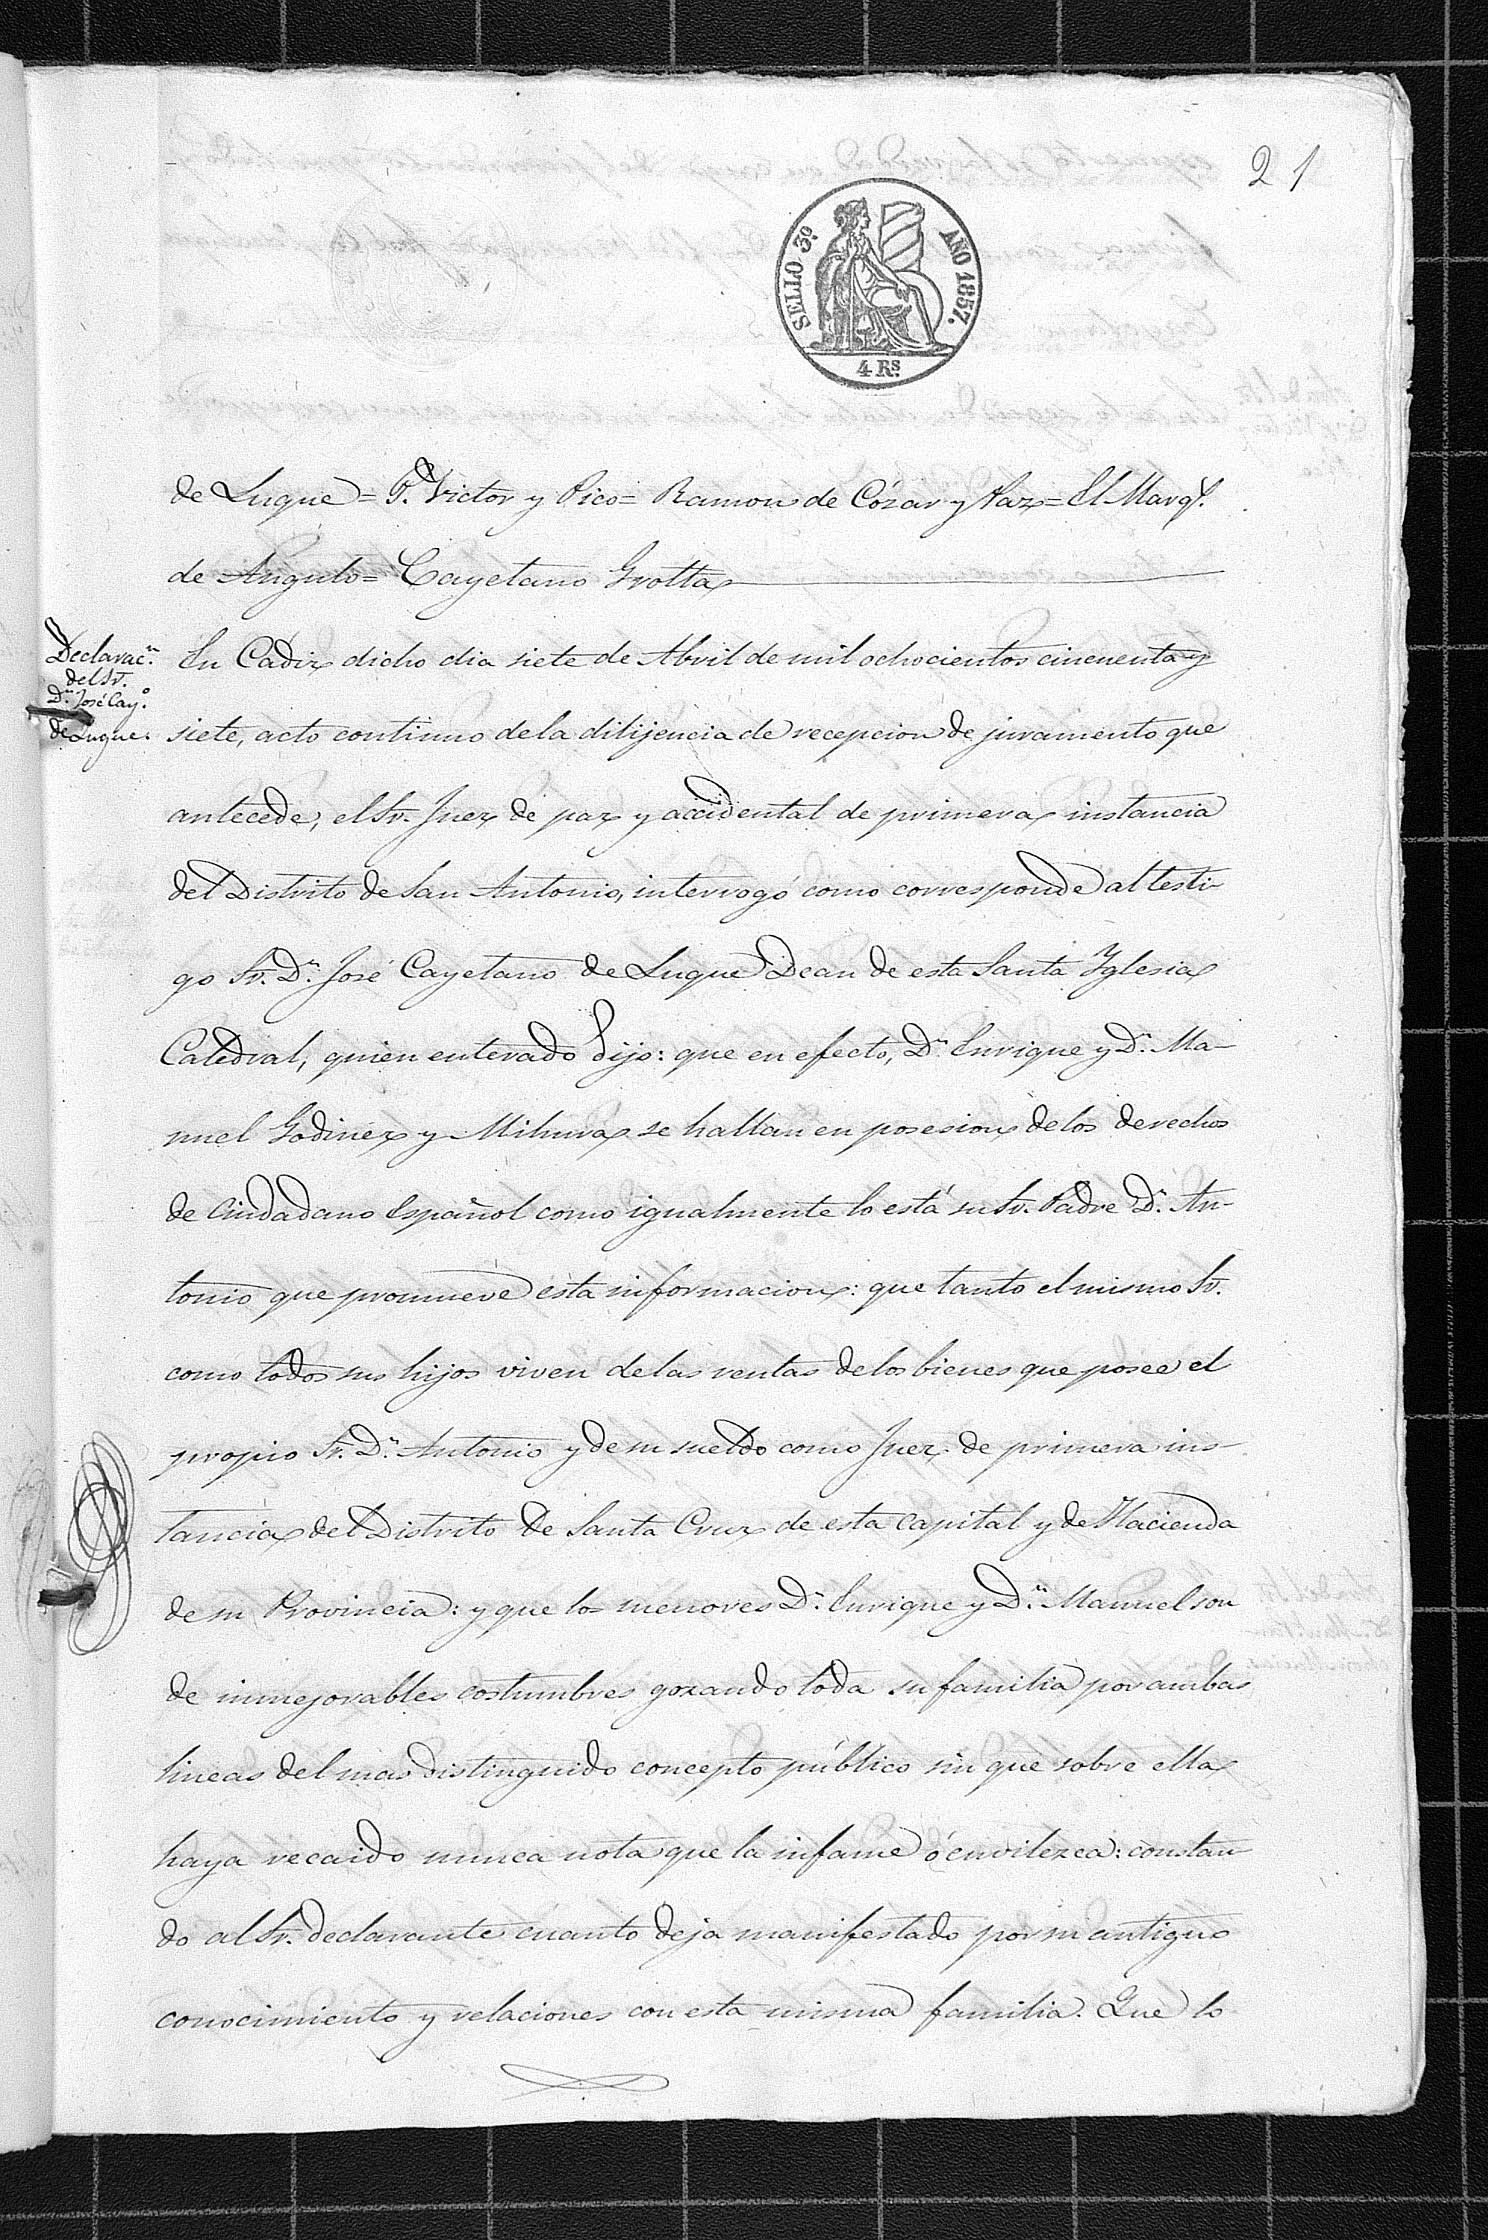 21
SELLO 3º
AÑO 1857.
4 Rs.
de Luque = P. Victor y Pico = Ramon de Cózar y Paz = El Marq.s
de Angulo = Cayetano Grotta
Declarac.n
del Sr.
D.n José Cay.o
de Luque.
En Cadiz dicho dia siete de Abril de mil ochocientos cincuenta y
siete, acto continuo de la dilijencia de recepcion de juramento que
antecede, el Sr. Juez de paz y accidental de primera instancia
del Distrito de San Antonio, interrogó como corresponde al testi-
go Sr. D.n José Cayetano de Luque Dean de esta Santa Yglesia
Catedral, quien enterado dijo: que en efecto, D.n Enrique y D.n Ma-
nuel Godinez y Mihura se hallan en posesion de los derechos
de Ciudadano Español como igualmente lo está su Sr. Padre D.n An-
tonio que promueve esta informacion: que tanto el mismo Sr.
como todos sus hijos viven de las rentas de los bienes que posee el
propio Sr. D.n Antonio y de su sueldo como Juez de primera ins-
tancia del Distrito de Santa Cruz de esta capital y de Hacienda
de su Provincia: y que los menores D.n Enrique y D.n Manuel son
de inmejorables costumbres gozando toda su familia por ambas
lineas del mas distinguido concepto público sin que sobre ella
haya recaido nunca nota que la infame ó envilezca: constan-
do al Sr. declarante cuanto deja manifestado por su antiguo
conocimiento y relaciones con esta misma familia. Que lo